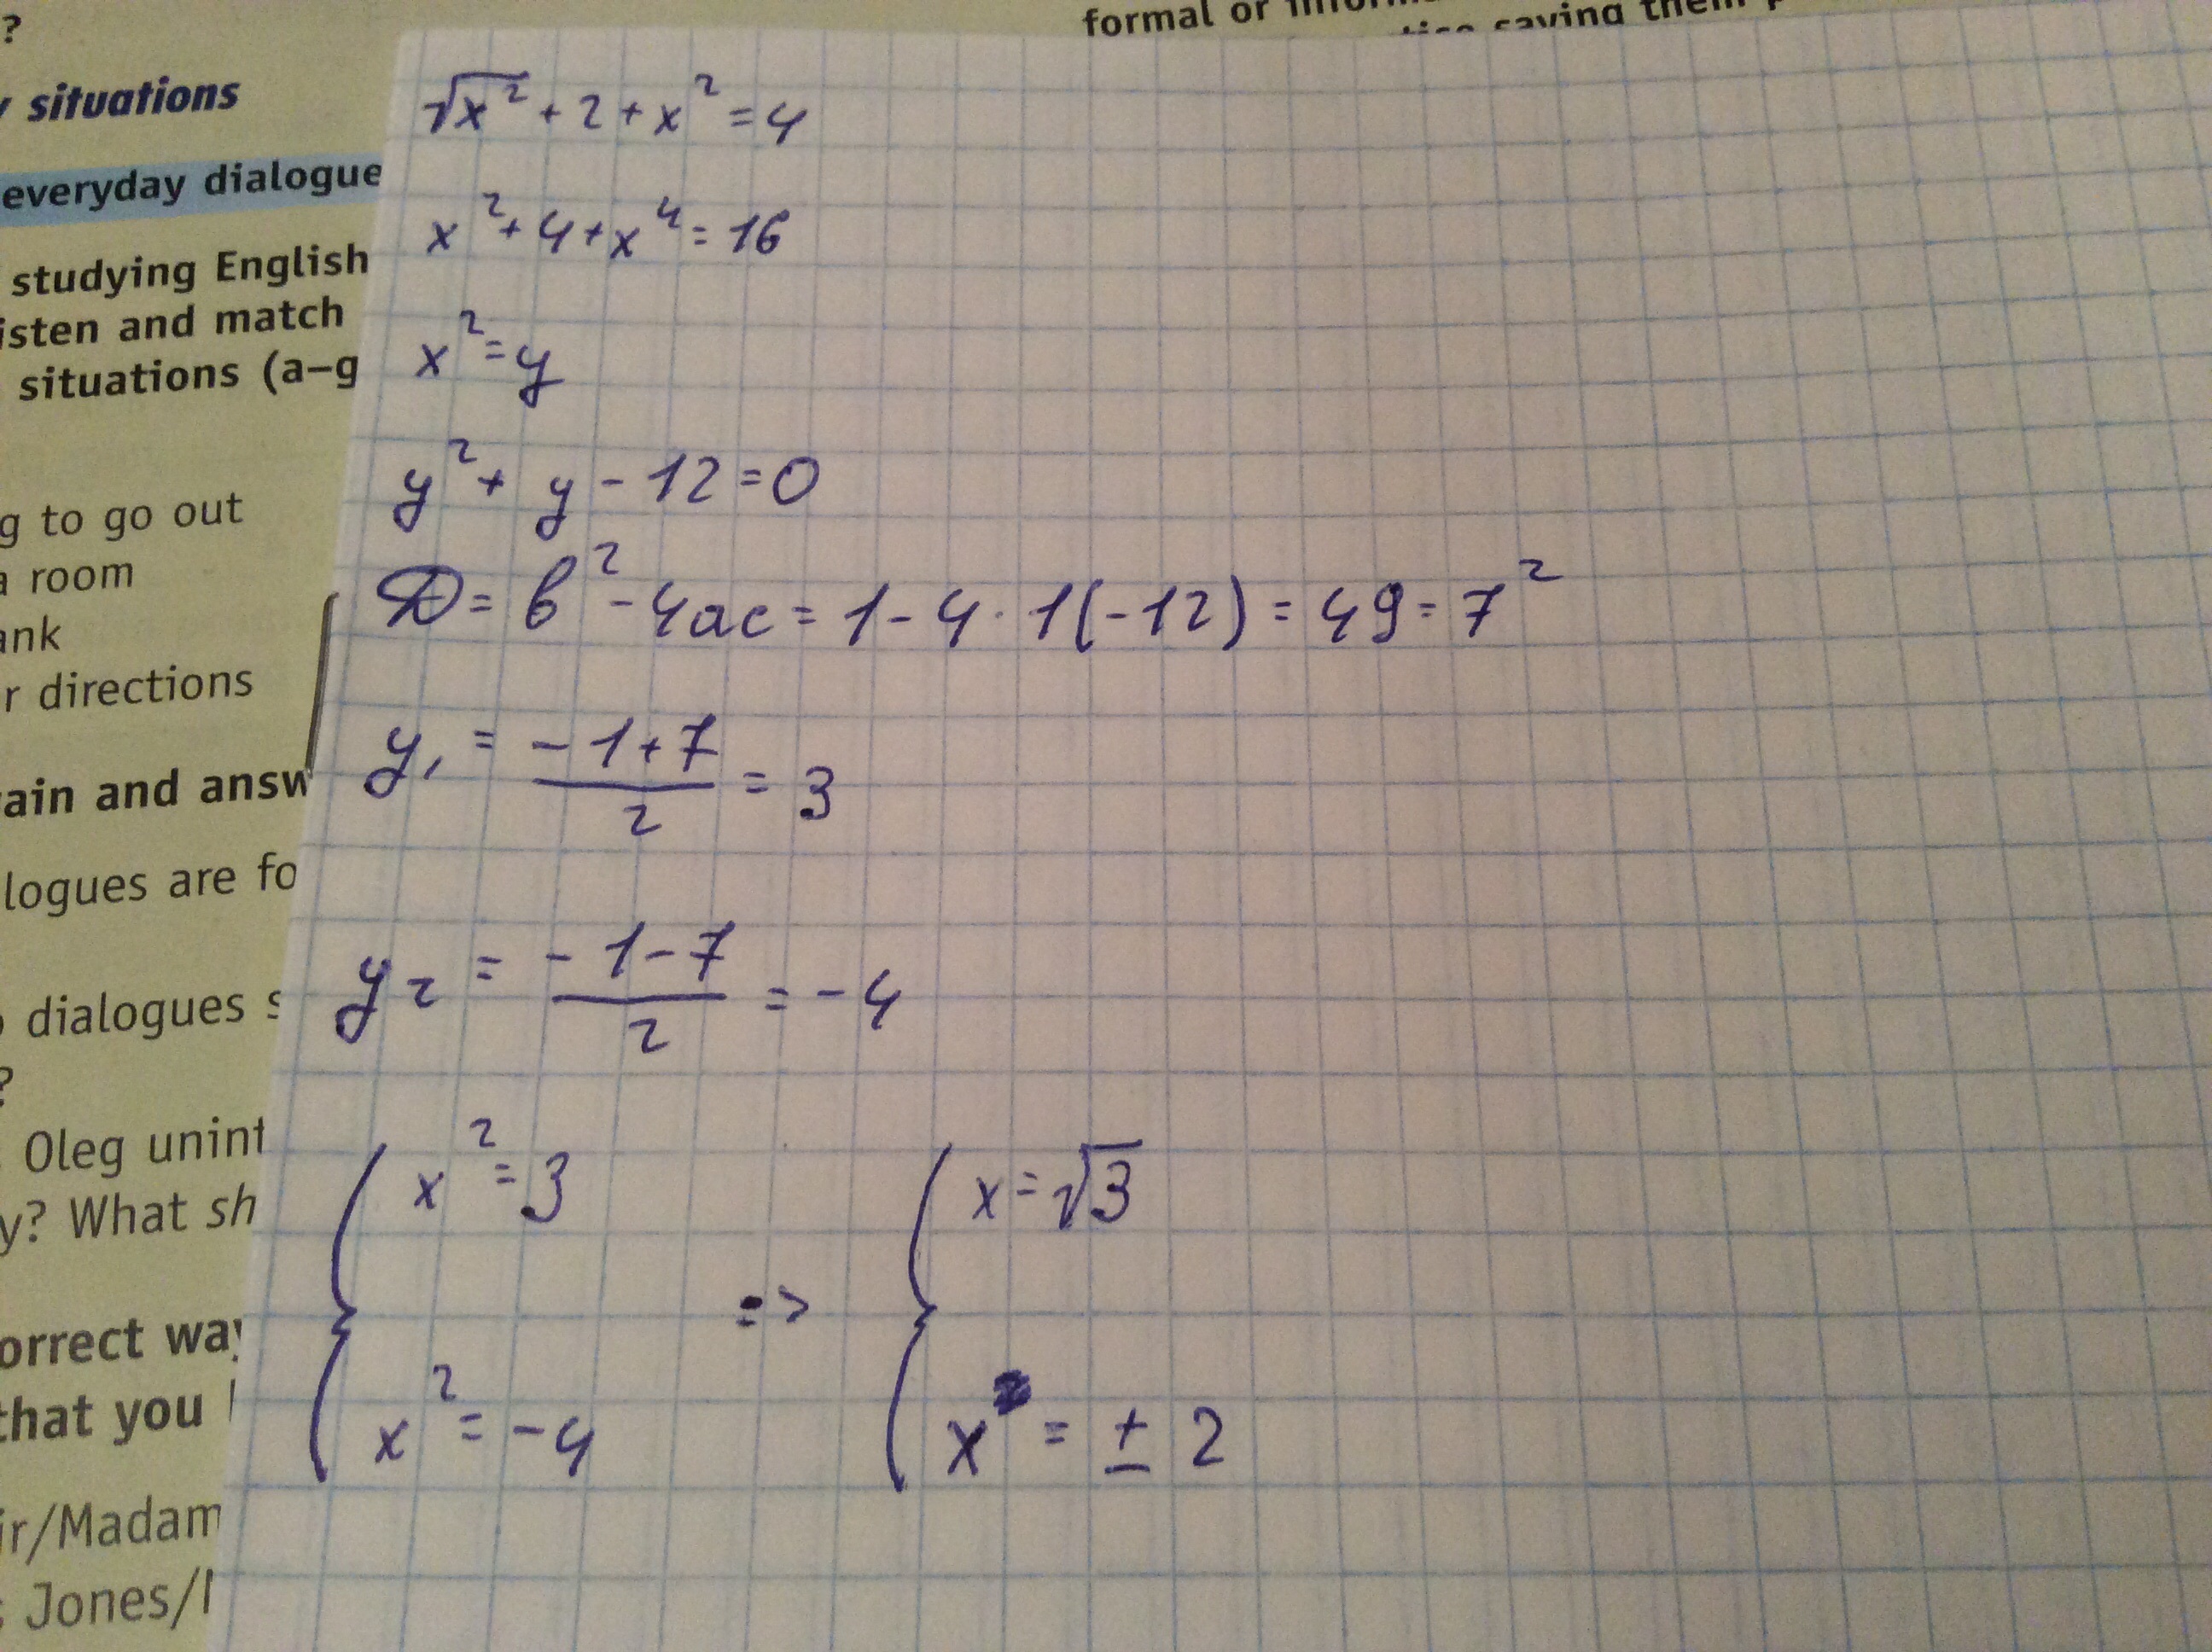 ?
formal or
saying them
y situations
everyday dialogue
studying English
isten and match
situations (a–g
g to go out
a room
ank
r directions
ain and answ
logues are fo
dialogues s
?
Oleg unint
y? What sh
orrect way
that you
ir/Madam
Jones/
√x² + 2 + x² = 4
x² + 4 + x⁴ = 16
x² = y
y² + y - 12 = 0
D = b² - 4ac = 1 - 4 · 1(-12) = 49 = 7²
y₁ = (-1+7)/2 = 3
y₂ = (-1-7)/2 = -4
{ x² = 3 => { x = √3
{ x² = -4 { x = ± 2